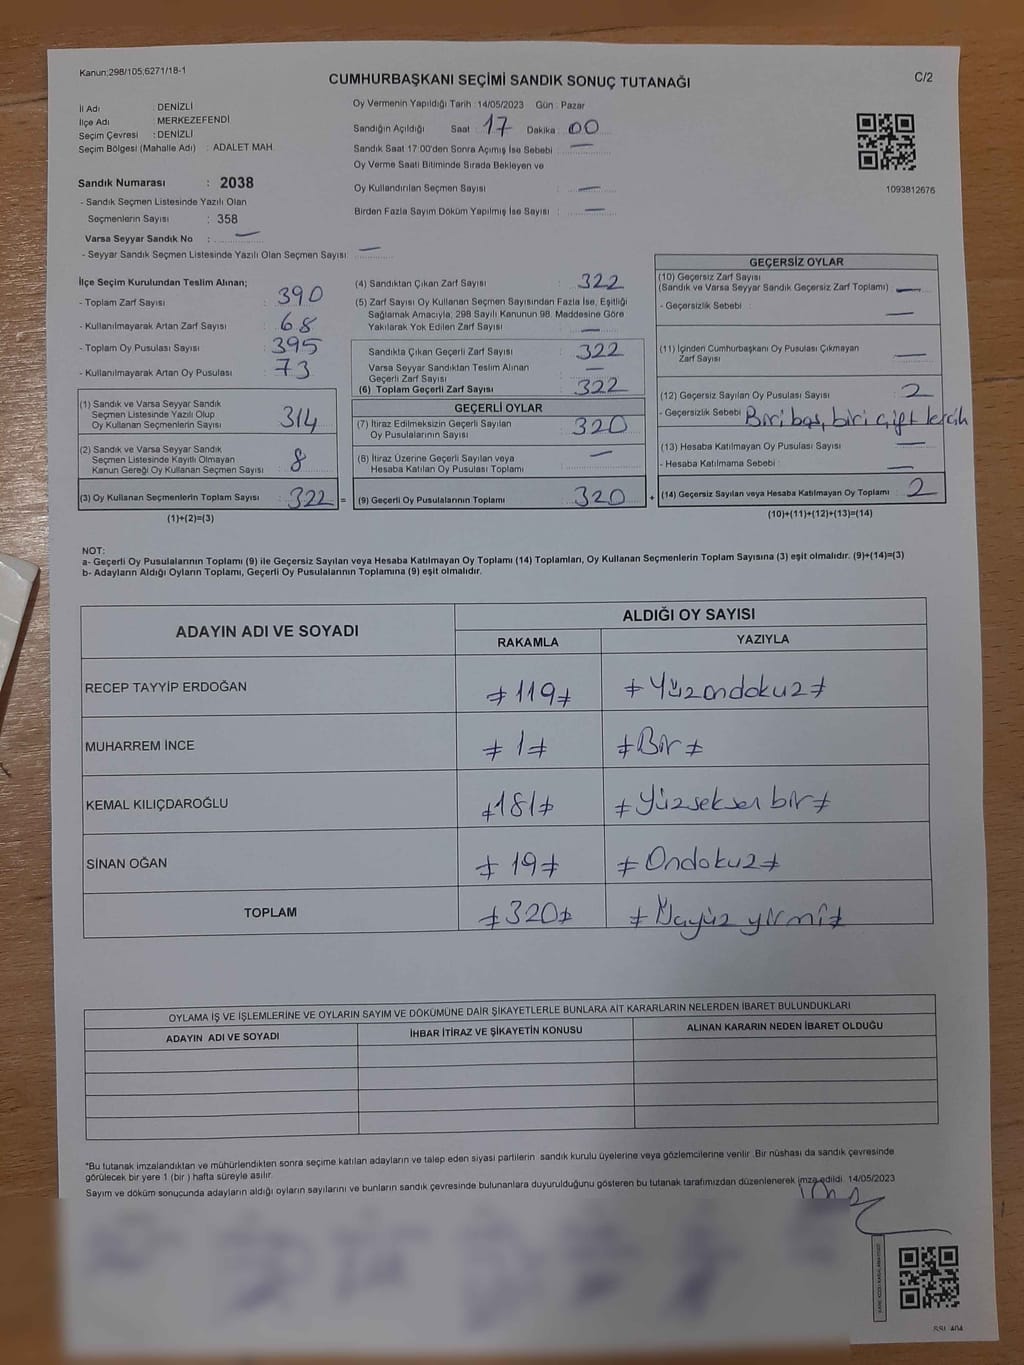 Kanun;298/105;6271/18-1
CUMHURBAŞKANI SEÇİMİ SANDIK SONUÇ TUTANAĞI
C/2
İl Adı : DENİZLİ
İlçe Adı : MERKEZEFENDİ
Seçim Çevresi : DENİZLİ
Seçim Bölgesi (Mahalle Adı) : ADALET MAH.
Sandık Numarası : 2038
- Sandık Seçmen Listesinde Yazılı Olan
Seçmenlerin Sayısı : 358
Varsa Seyyar Sandık No : —
- Seyyar Sandık Seçmen Listesinde Yazılı Olan Seçmen Sayısı : —
Oy Vermenin Yapıldığı Tarih : 14/05/2023 Gün : Pazar
Sandığın Açıldığı Saat : 17 Dakika : 00
Sandık Saat 17:00'den Sonra Açımış İse Sebebi : —
Oy Verme Saati Bitiminde Sırada Bekleyen ve
Oy Kullandırılan Seçmen Sayısı : —
Birden Fazla Sayım Döküm Yapılmış İse Sayısı : —
1093812676
İlçe Seçim Kurulundan Teslim Alınan;
- Toplam Zarf Sayısı : 390
- Kullanılmayarak Artan Zarf Sayısı : 68
- Toplam Oy Pusulası Sayısı : 395
- Kullanılmayarak Artan Oy Pusulası : 73
(1) Sandık ve Varsa Seyyar Sandık
Seçmen Listesinde Yazılı Olup
Oy Kullanan Seçmenlerin Sayısı : 314
(2) Sandık ve Varsa Seyyar Sandık
Seçmen Listesinde Kayıtlı Olmayan
Kanun Gereği Oy Kullanan Seçmen Sayısı : 8
(3) Oy Kullanan Seçmenlerin Toplam Sayısı : 322 =
(1)+(2)=(3)
(4) Sandıktan Çıkan Zarf Sayısı : 322
(5) Zarf Sayısı Oy Kullanan Seçmen Sayısından Fazla İse, Eşitliği
Sağlamak Amacıyla, 298 Sayılı Kanunun 98. Maddesine Göre
Yakılarak Yok Edilen Zarf Sayısı : —
Sandıkta Çıkan Geçerli Zarf Sayısı : 322
Varsa Seyyar Sandıktan Teslim Alınan
Geçerli Zarf Sayısı : —
(6) Toplam Geçerli Zarf Sayısı : 322
GEÇERLİ OYLAR
(7) İtiraz Edilmeksizin Geçerli Sayılan
Oy Pusulalarının Sayısı : 320
(8) İtiraz Üzerine Geçerli Sayılan veya
Hesaba Katılan Oy Pusulası Toplamı : —
(9) Geçerli Oy Pusulalarının Toplamı : 320 +
GEÇERSİZ OYLAR
(10) Geçersiz Zarf Sayısı
(Sandık ve Varsa Seyyar Sandık Geçersiz Zarf Toplamı) : —
- Geçersizlik Sebebi : —
(11) İçinden Cumhurbaşkanı Oy Pusulası Çıkmayan
Zarf Sayısı : —
(12) Geçersiz Sayılan Oy Pusulası Sayısı : 2
- Geçersizlik Sebebi : Biri boş, biri çift tercih
(13) Hesaba Katılmayan Oy Pusulası Sayısı : —
- Hesaba Katılmama Sebebi : —
(14) Geçersiz Sayılan veya Hesaba Katılmayan Oy Toplamı : 2
(10)+(11)+(12)+(13)=(14)
NOT:
a- Geçerli Oy Pusulalarının Toplamı (9) ile Geçersiz Sayılan veya Hesaba Katılmayan Oy Toplamı (14) Toplamları, Oy Kullanan Seçmenlerin Toplam Sayısına (3) eşit olmalıdır. (9)+(14)=(3)
b- Adayların Aldığı Oyların Toplamı, Geçerli Oy Pusulalarının Toplamına (9) eşit olmalıdır.
ADAYIN ADI VE SOYADI
ALDIĞI OY SAYISI
RAKAMLA YAZIYLA
RECEP TAYYİP ERDOĞAN ≠119≠ ≠Yüzondokuz≠
MUHARREM İNCE ≠1≠ ≠Bir≠
KEMAL KILIÇDAROĞLU ≠181≠ ≠Yüzseksen bir≠
SİNAN OĞAN ≠19≠ ≠Ondokuz≠
TOPLAM ≠320≠ ≠Üçyüz yirmi≠
OYLAMA İŞ VE İŞLEMLERİNE VE OYLARIN SAYIM VE DÖKÜMÜNE DAİR ŞİKAYETLERLE BUNLARA AİT KARARLARIN NELERDEN İBARET BULUNDUKLARI
ADAYIN ADI VE SOYADI İHBAR İTİRAZ VE ŞİKAYETİN KONUSU ALINAN KARARIN NEDEN İBARET OLDUĞU
*Bu tutanak imzalandıktan ve mühürlendikten sonra seçime katılan adayların ve talep eden siyasi partilerin sandık kurulu üyelerine veya gözlemcilerine verilir. Bir nüshası da sandık çevresinde
görülecek bir yere 1 (bir ) hafta süreyle asılır.
Sayım ve döküm sonucunda adayların aldığı oyların sayılarını ve bunların sandık çevresinde bulunanlara duyurulduğunu gösteren bu tutanak tarafımızdan düzenlenerek imza edildi. 14/05/2023